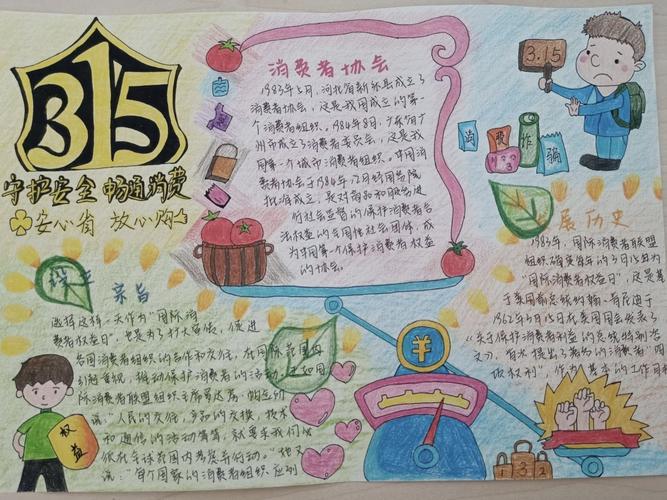 315
守护安全 畅通消费
安心省 放心购
消费者协会
1983年5月，河北省新乐县成立了
消费者协会，这是我国成立的第一
个消费者组织。1984年8月，广东省广
州市成立了消费者委员会，这是我
国第一个城市消费者组织。中国消
费者协会于1984年12月经国务院
批准成立，是对商品和服务进
行社会监督的保护消费者合
法权益的全国性社会团体，成
为中国第一个保护消费者权益
的协会。
3.15
消 费 诈 骗
展历史
1983年，国际消费者联盟
组织确定每年的3月15日为
“国际消费者权益日”，这是基
于美国前总统约翰·肯尼迪于
1962年3月15日在美国国会发表了
《关于保护消费者利益的总统特别咨
文》，首次提出了著名的消费者“四
项权利”，作为基本的工作目
宗旨
选择这样一天作为“国际消
费者权益日”，也是为了扩大宣传，促进
各国消费者组织的合作和交往，在国际范围内
引起重视，推动保护消费者的活动。
际消费者联盟组织
说：“人民的交往，产品的交换，技术
和通信的活动等等，就要求我们必
须在全球范围内考虑并行动。”他又
说：“每个国家的消费者组织应列
权益
¥
1 3 2